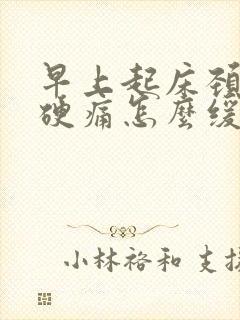 早上起床頸
硬痛怎麼緩
小林裕和 支援